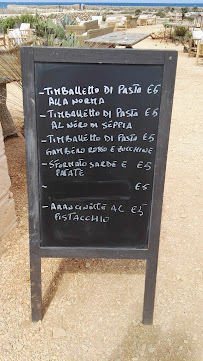 - TIMBALLETTO DI PASTA €5
ALLA NORMA
- TIMBALLETTO DI PASTA €5
AL NERO DI SEPPIA
- TIMBALLETTO DI PASTA €5
GAMBERO ROSSO E ZUCCHINE
- SFORMATO SARDE E €5
PATATE
- €5
- ARANCINETTE AL €5
PISTACCHIO